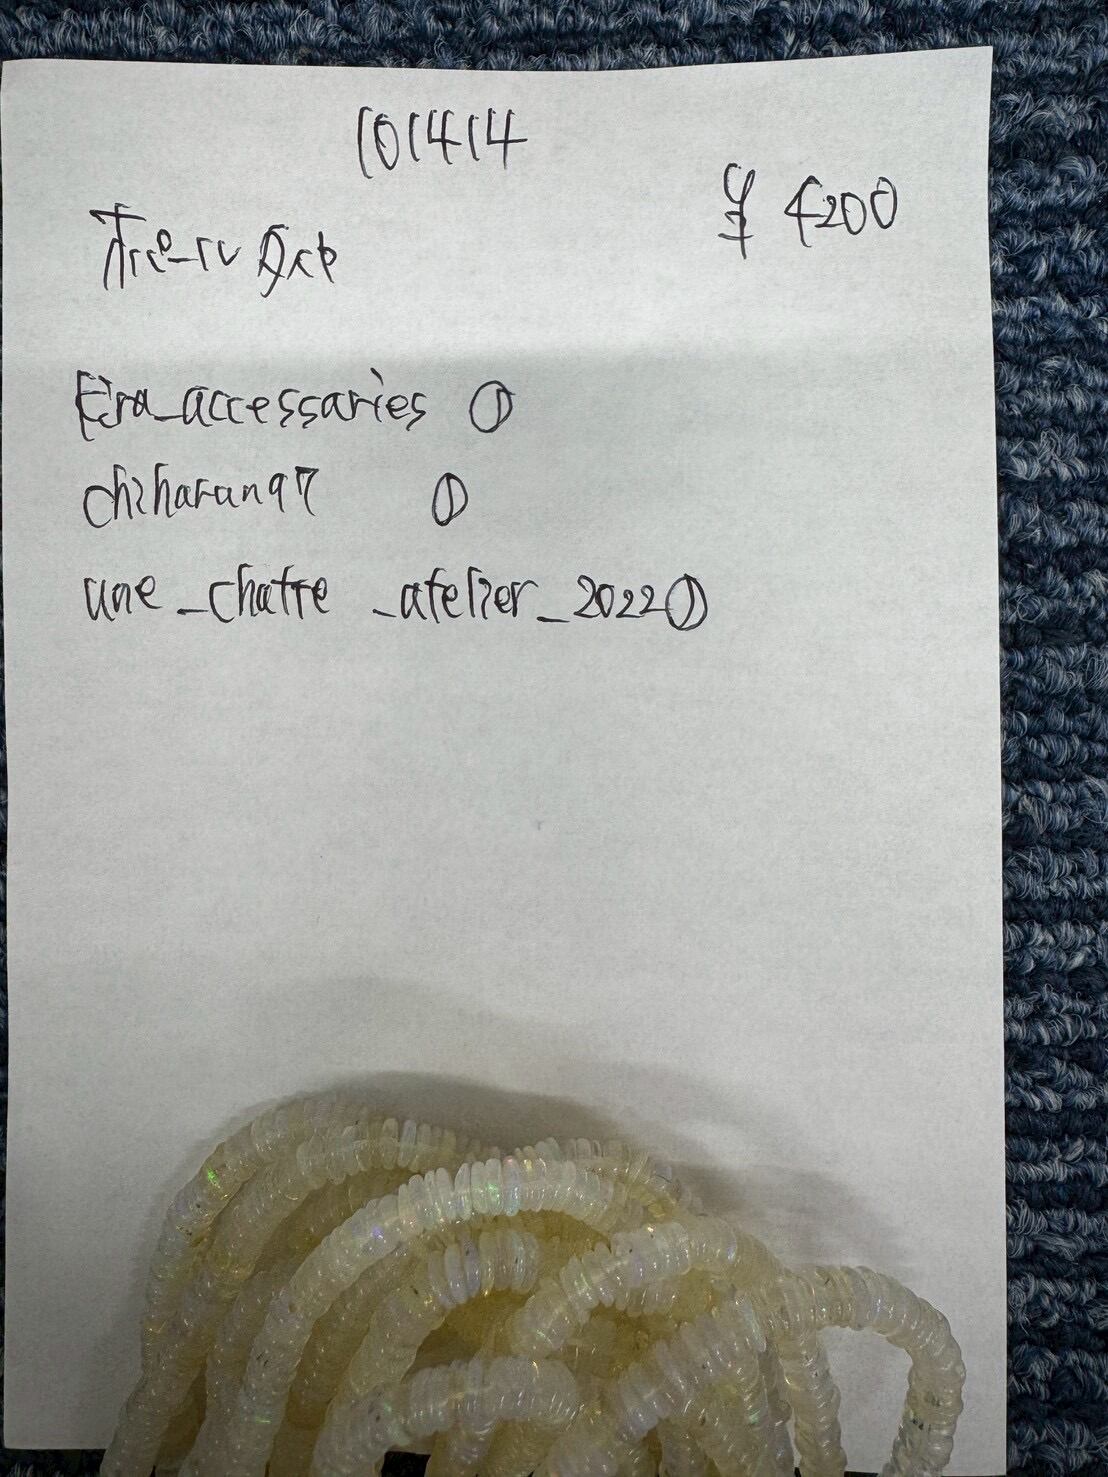 101414
¥ 4200
Era_accessaries ①
chiharan97 ①
une_chatte_atelier_2022①